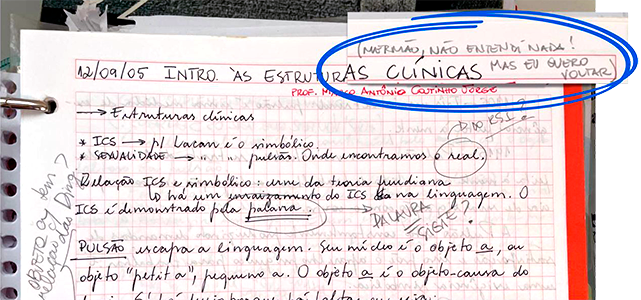 (MERMÃO, NÃO ENTENDI NADA!
MAS EU QUERO
VOLTAR)
12/09/05 INTRO. ÀS ESTRUTURAS CLÍNICAS
PROF. MARCO ANTÔNIO COUTINHO JORGE
→ Estruturas clínicas
DIDO PSI?
* ICS → p/ Lacan é o simbólico.
* SEXUALIDADE → " pulsão. Onde encontramos o real.
Relação ICS e simbólico: cerne da teoria freudiana
↳ há um enraizamento do ICS na linguagem. O
ICS é demonstrado pela palavra.
PALAVRA
SIGTE?
OBJETO a tem
relação c/
das Ding?
PULSÃO escapra a linguagem. Seu núcleo é o objeto a, ou
objeto "petit a", pequeno a. O objeto a é o objeto-causa do